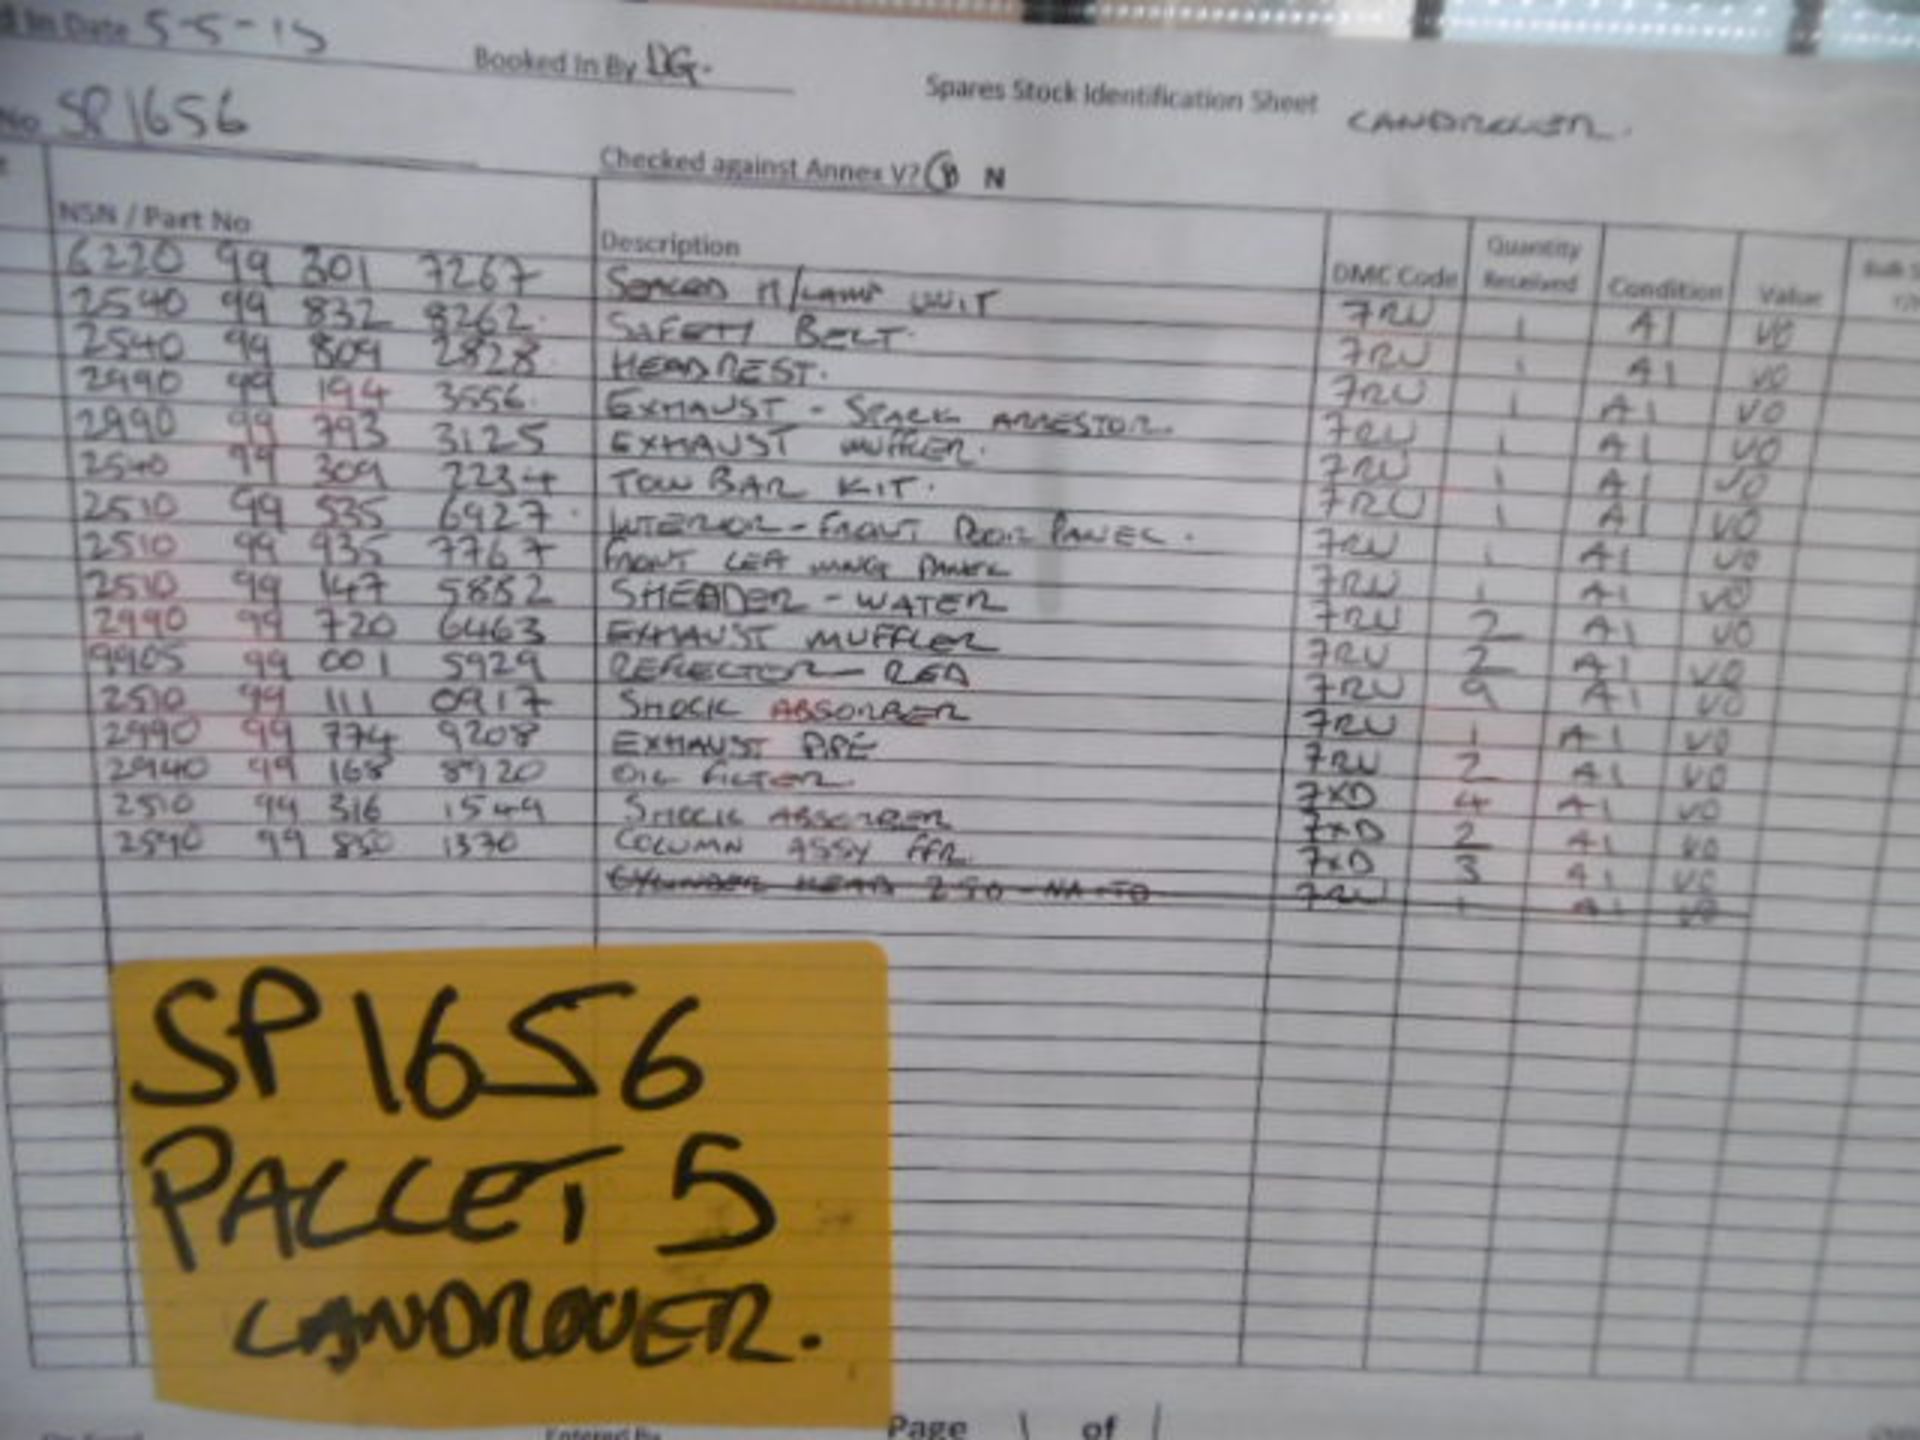 In Date 5-5-15 Booked In By DG.
No SP1656 Spares Stock Identification Sheet LANDROVER.
Checked against Annex V? Y N
NSN / Part No Description DMC Code Quantity Received Condition Value
6220 99 301 7267 SEALED H/LAMP UNIT 7RU 1 A1 V0
2540 99 832 8262 SAFETY BELT. 7RU 1 A1 V0
2540 99 809 2828 HEADREST. 7RU 1 A1 V0
2990 99 194 3556 EXHAUST - SPARK ARRESTOR. 7RU 1 A1 V0
2990 99 793 3125 EXHAUST MUFFLER. 7RU 1 A1 V0
2540 99 309 2234 TOW BAR KIT. 7RU 1 A1 V0
2510 99 535 6927 INTERIOR - FRONT DOOR PANEL. 7RU 1 A1 V0
2510 99 935 7767 FRONT LEFT WING PANEL 7RU 1 A1 V0
2510 99 147 5882 SHEDDER - WATER 7RU 2 A1 V0
2990 99 720 6463 EXHAUST MUFFLER 7RU 2 A1 V0
9905 99 001 5929 REFLECTOR RED 7RU 9 A1 V0
2510 99 111 0917 SHOCK ABSORBER 7RU 1 A1 V0
2990 99 774 9208 EXHAUST PIPE 7RU 2 A1 V0
2940 99 168 8920 OIL FILTER. 7XD 4 A1 V0
2510 99 316 1549 SHOCK ABSORBER 7XD 2 A1 V0
2590 99 850 1370 COLUMN ASSY FFR. 7XD 3 A1 V0
CYLINDER HEAD 7RU 1 A1 V0
SP1656
PALLET 5
LANDROVER.
Entered By Page 1 of 1